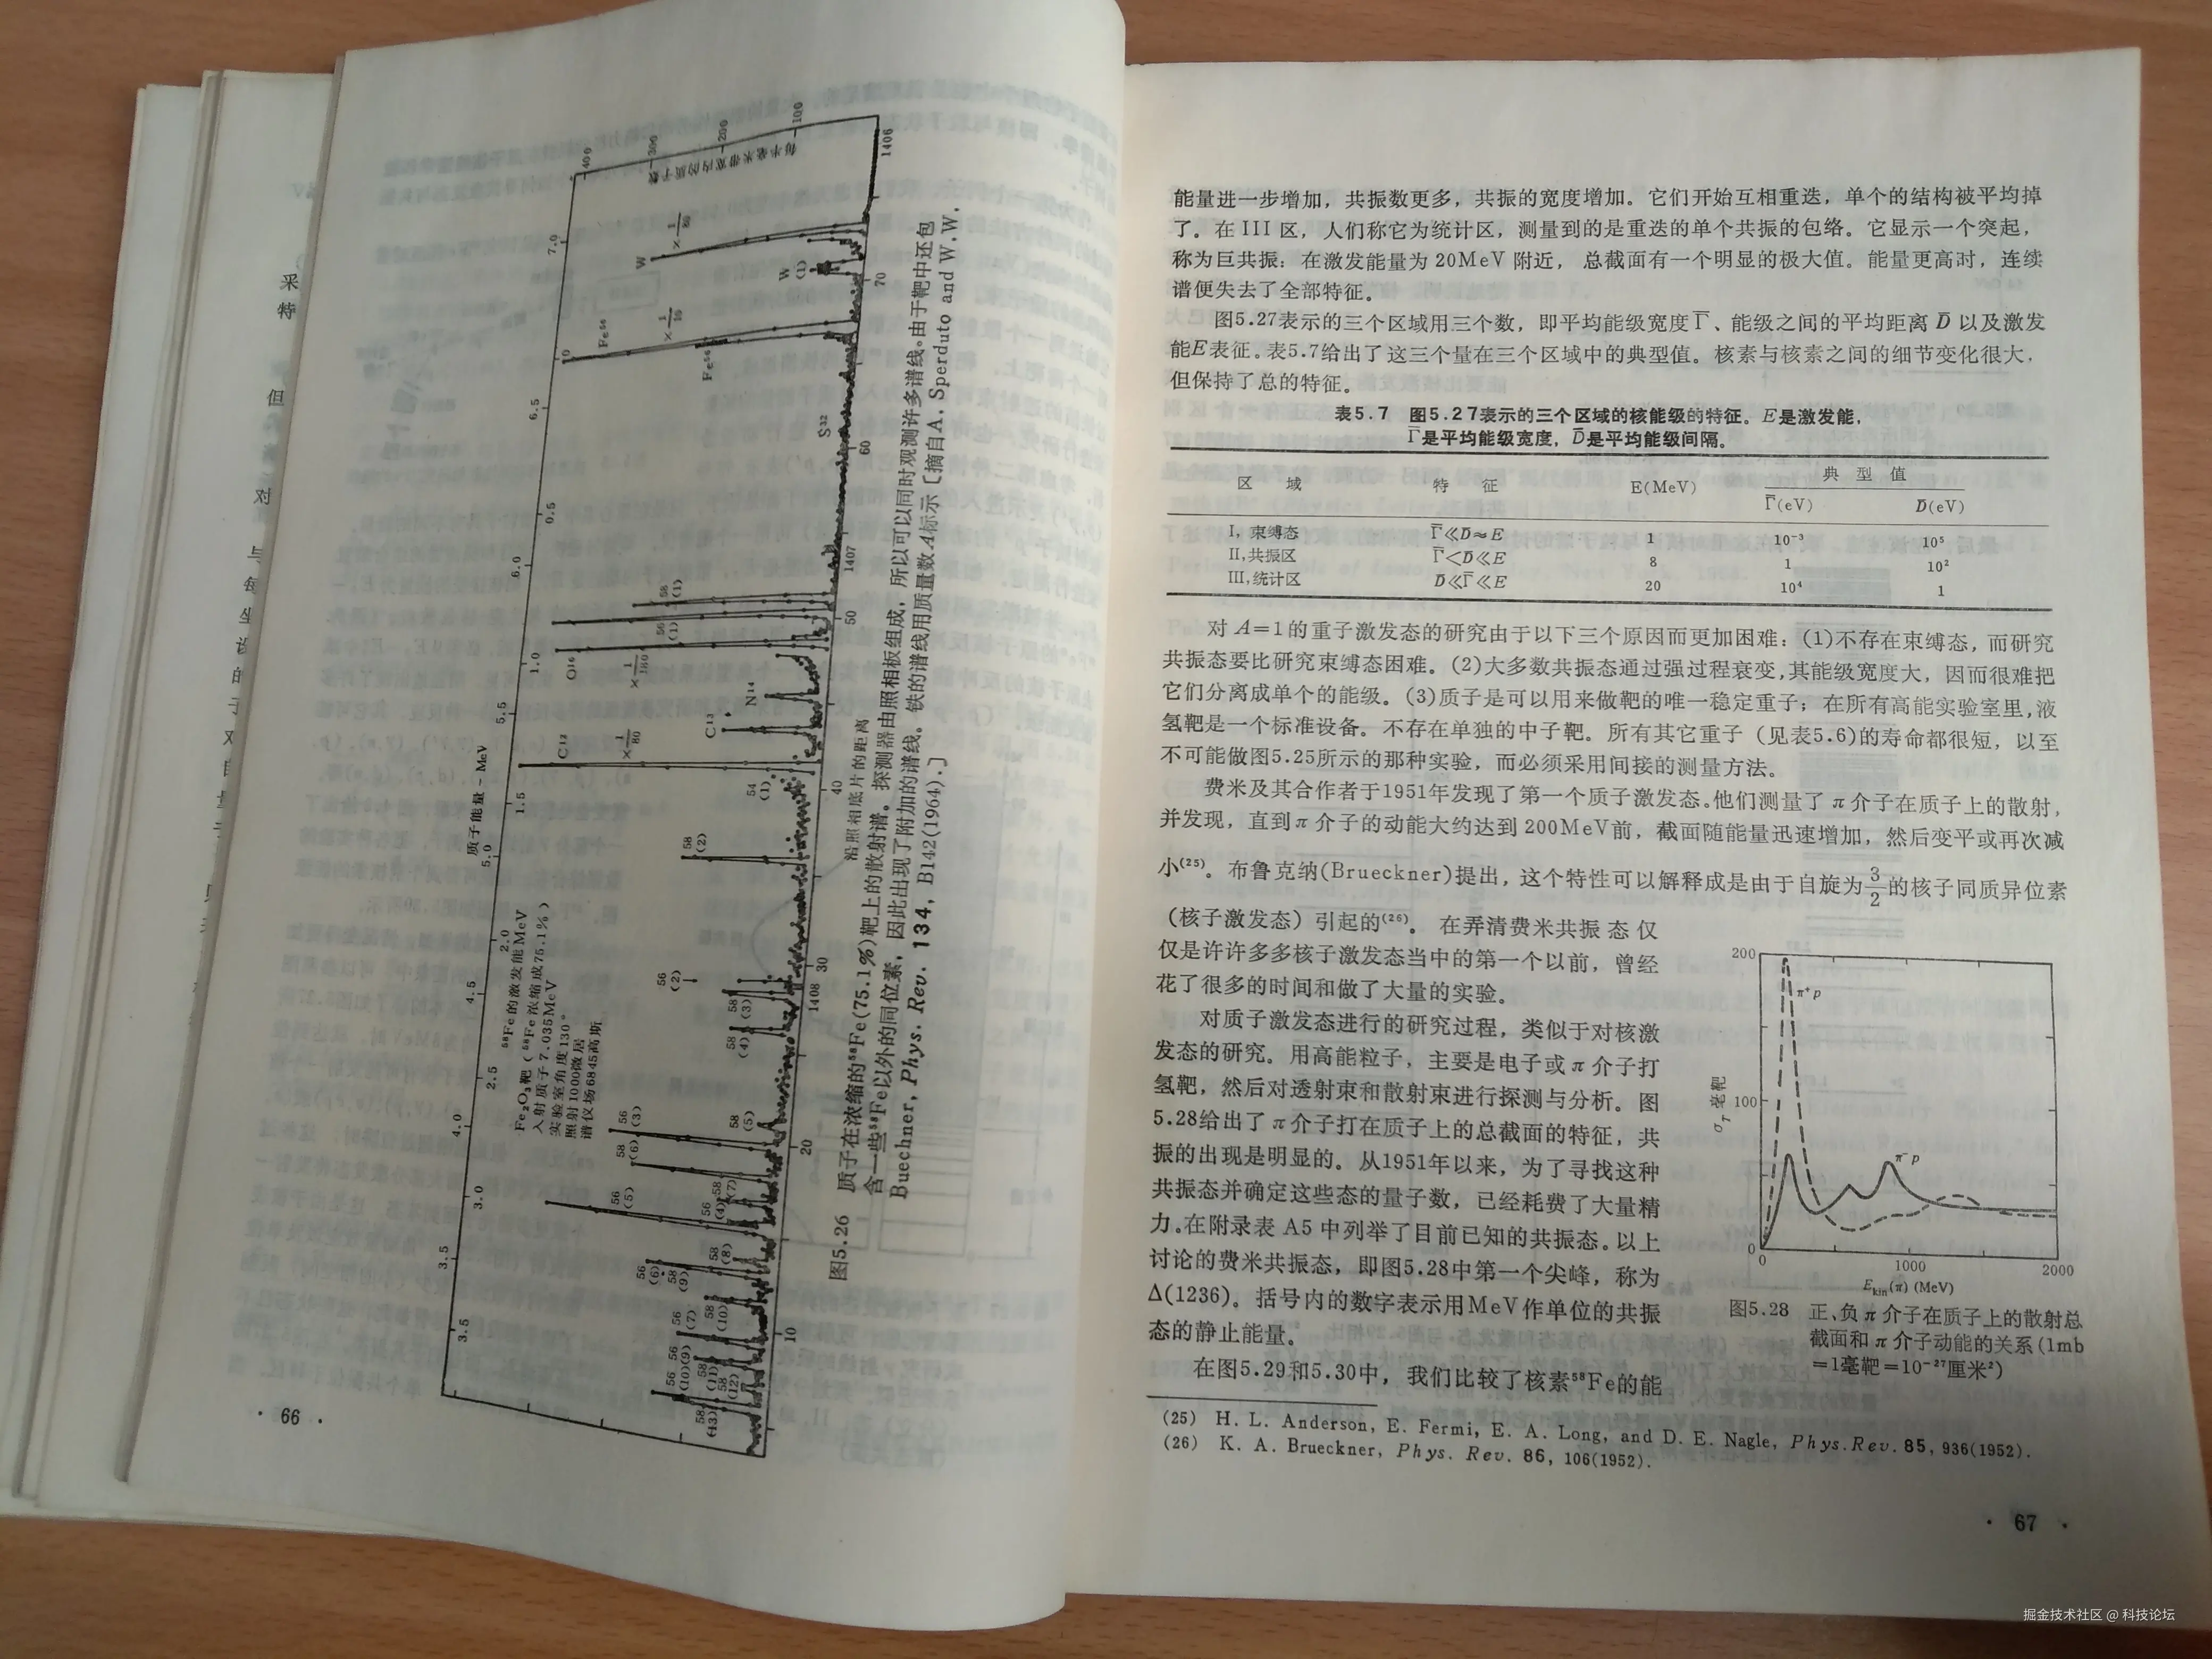 采
特
但
对
与
每
坐
设
的
子
对
质子能量-MeV
⁵⁸Fe的激发能MeV
Fe₂O₃靶(⁵⁸Fe浓缩成75.1%)
入射质子7.035MeV
实验室角度130°
照射1000微居
谱仪场6845高斯
每半毫米带宽内的质子数
400
300
200
100
7.0
6.5
6.0
5.5
5.0
4.5
4.0
3.5
0
0.5
1.0
1.5
2.0
2.5
3.0
3.5
10
20
30
40
50
60
70
1408
1407
1406
W
W
(1)
Fe⁵⁶
Fe⁵⁴
S³²
O¹⁶
N¹⁴
C¹³
C¹²
沿照相底片的距离
图5.26 质子在浓缩的⁵⁸Fe(75.1%)靶上的散射谱。探测器由照相板组成，所以可以同时观测许多谱线。由于靶中还包
含一些⁵⁸Fe以外的同位素，因此出现了附加的谱线。铁的谱线用质量数A标示〔摘自A. Sperduto and W.W.
Buechner, Phys. Rev. 134, B142(1964).〕
· 66 ·
能量进一步增加，共振数更多，共振的宽度增加。它们开始互相重迭，单个的结构被平均掉
了。在III区，人们称它为统计区，测量到的是重迭的单个共振的包络。它显示一个突起，
称为巨共振：在激发能量为20MeV附近，总截面有一个明显的极大值。能量更高时，连续
谱便失去了全部特征。
图5.27表示的三个区域用三个数，即平均能级宽度Γ̄、能级之间的平均距离D̄以及激发
能E表征。表5.7给出了这三个量在三个区域中的典型值。核素与核素之间的细节变化很大，
但保持了总的特征。
表5.7 图5.27表示的三个区域的核能级的特征。E是激发能，
Γ̄是平均能级宽度，D̄是平均能级间隔。
区 域 特 征 E(MeV) 典 型 值
Γ̄(eV) D̄(eV)
I，束缚态 Γ̄≪D̄≈E 1 10⁻³ 10⁵
II，共振区 Γ̄<D̄≪E 8 1 10²
III，统计区 D̄≪Γ̄≪E 20 10⁴ 1
对A=1的重子激发态的研究由于以下三个原因而更加困难：(1)不存在束缚态，而研究
共振态要比研究束缚态困难。(2)大多数共振态通过强过程衰变，其能级宽度大，因而很难把
它们分离成单个的能级。(3)质子是可以用来做靶的唯一稳定重子；在所有高能实验室里，液
氢靶是一个标准设备。不存在单独的中子靶。所有其它重子（见表5.6）的寿命都很短，以至
不可能做图5.25所示的那种实验，而必须采用间接的测量方法。
费米及其合作者于1951年发现了第一个质子激发态。他们测量了π介子在质子上的散射，
并发现，直到π介子的动能大约达到200MeV前，截面随能量迅速增加，然后变平或再次减
小⁽²⁵⁾。布鲁克纳(Brueckner)提出，这个特性可以解释成是由于自旋为3/2的核子同质异位素
（核子激发态）引起的⁽²⁶⁾。在弄清费米共振态仅
仅是许许多多核子激发态当中的第一个以前，曾经
花了很多的时间和做了大量的实验。
对质子激发态进行的研究过程，类似于对核激
发态的研究。用高能粒子，主要是电子或π介子打
氢靶，然后对透射束和散射束进行探测与分析。图
5.28给出了π介子打在质子上的总截面的特征，共
振的出现是明显的。从1951年以来，为了寻找这种
共振态并确定这些态的量子数，已经耗费了大量精
力。在附录表A5中列举了目前已知的共振态。以上
讨论的费米共振态，即图5.28中第一个尖峰，称为
Δ(1236)。括号内的数字表示用MeV作单位的共振
态的静止能量。
在图5.29和5.30中，我们比较了核素⁵⁸Fe的能
200
100
0
σT毫靶
π⁺p
π⁻p
0
1000
2000
Ekin(π) (MeV)
图5.28 正、负π介子在质子上的散射总
截面和π介子动能的关系(1mb
=1毫靶=10⁻²⁷厘米²)
(25) H. L. Anderson, E. Fermi, E. A. Long, and D. E. Nagle, Phys.Rev. 85, 936(1952).
(26) K. A. Brueckner, Phys. Rev. 86, 106(1952).
· 67 ·
掘金技术社区 @ 科技论坛